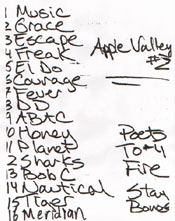 1 Music
2 Grace
3 Escape
4 Freak
5 El Do
6 Courage
7 Fever
8 DD
9 ABTC
10 Honey
11 Planet
2 Sharks
13 Bob C
14 Nautical
15 Tiger
16 Meridian
Apple Valley
#2
Poets
To 4
Fire
Stay
Bones